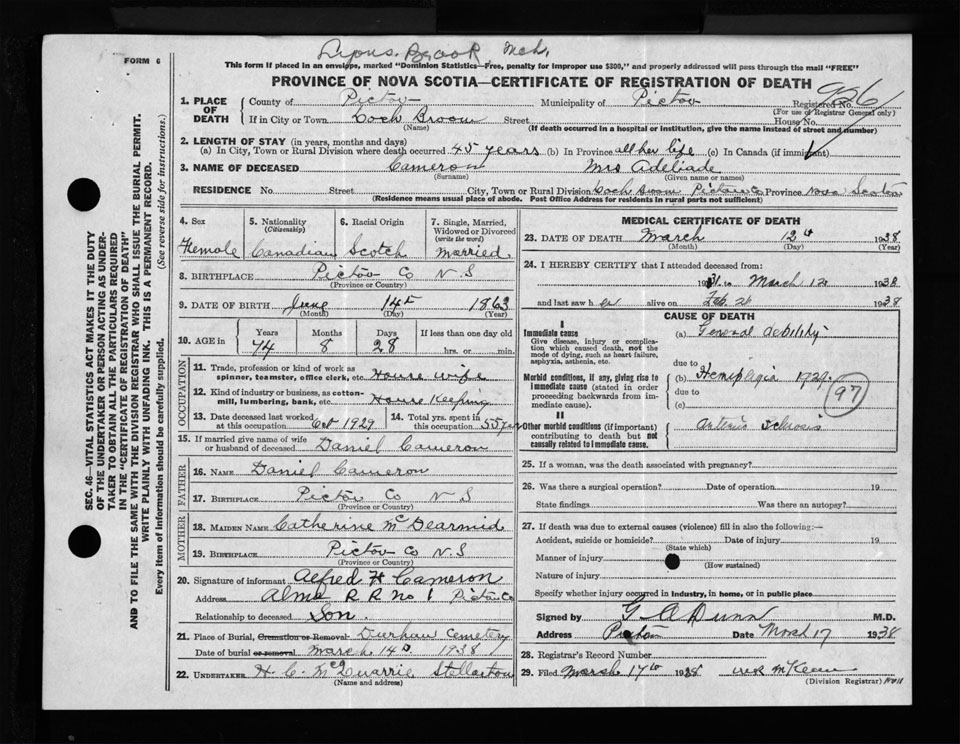 FORM 6
Lyons Brook Mch.
This form if placed in an envelope, marked "Dominion Statistics—Free, penalty for improper use $300," and properly addressed will pass through the mail "FREE"
PROVINCE OF NOVA SCOTIA—CERTIFICATE OF REGISTRATION OF DEATH
926
1. PLACE OF DEATH County of Pictou Municipality of Pictou Registered No.
(For use of Registrar General only)
If in City or Town Loch Broom Street House No.
(Name) (If death occurred in a hospital or institution, give the name instead of street and number)
2. LENGTH OF STAY (in years, months and days)
(a) In City, Town or Rural Division where death occurred 45 years (b) In Province all her life (c) In Canada (if immigrant)
3. NAME OF DECEASED Cameron Mrs Adeliade
(Surname) (Given name or names)
RESIDENCE No. Street City, Town or Rural Division Loch Broom Pictou Co Province Nova Scotia
(Residence means usual place of abode. Post Office Address for residents in rural parts not sufficient)
4. Sex 5. Nationality (Citizenship) 6. Racial Origin 7. Single, Married, Widowed or Divorced (write the word)
Female Canadian Scotch Married
8. BIRTHPLACE Pictou Co N.S
(Province or Country)
9. DATE OF BIRTH June 14th 1863
(Month) (Day) (Year)
10. AGE in Years Months Days If less than one day old
74 8 28 hrs. or min.
OCCUPATION
11. Trade, profession or kind of work as spinner, teamster, office clerk, etc. House wife
12. Kind of industry or business, as cotton-mill, lumbering, bank, etc. House Keeping
13. Date deceased last worked at this occupation 1929 14. Total yrs. spent in this occupation 55 yrs
15. If married give name of wife or husband of deceased Daniel Cameron
FATHER
16. NAME Daniel Cameron
17. BIRTHPLACE Pictou Co N S
(Province or Country)
MOTHER
18. MAIDEN NAME Catherine McDearmid
19. BIRTHPLACE Pictou Co N.S
(Province or Country)
20. Signature of informant Alfred H Cameron
Address Alma R R no 1 Pictou Co
Relationship to deceased Son.
21. Place of Burial, Cremation or Removal Durham Cemetery
Date of burial or removal March 14th 1938
22. UNDERTAKER H. C. McQuarrie Stellarton
(Name and address)
MEDICAL CERTIFICATE OF DEATH
23. DATE OF DEATH March 12th 1938
(Month) (Day) (Year)
24. I HEREBY CERTIFY that I attended deceased from:
1931 to March 12 1938
and last saw her alive on Feb 26 1938
CAUSE OF DEATH
I
Immediate cause (a) General debility
Give disease, injury or complication which caused death, not the mode of dying, such as heart failure, asphyxia, asthenia, etc.
due to
Morbid conditions, if any, giving rise to immediate cause (stated in order proceeding backwards from immediate cause). (b) Hemiplegia 1929.
due to
(c)
97
II
Other morbid conditions (if important) contributing to death but not causally related to immediate cause. Arterio Sclerosis
25. If a woman, was the death associated with pregnancy?
26. Was there a surgical operation? Date of operation 19
State findings Was there an autopsy?
27. If death was due to external causes (violence) fill in also the following:—
Accident, suicide or homicide? Date of injury 19
(State which)
Manner of injury
(How sustained)
Nature of injury
Specify whether injury occurred in industry, in home, or in public place
Signed by G A Dunn M.D.
Address Pictou Date March 17 1938
28. Registrar's Record Number
29. Filed March 17th 1938 McKean
(Division Registrar)
SEC. 46—VITAL STATISTICS ACT MAKES IT THE DUTY
OF THE UNDERTAKER OR PERSON ACTING AS UNDER-
TAKER TO OBTAIN ALL THE PARTICULARS REQUIRED
IN THE "CERTIFICATE OF REGISTRATION OF DEATH"
AND TO FILE THE SAME WITH THE DIVISION REGISTRAR WHO SHALL ISSUE THE BURIAL PERMIT.
WRITE PLAINLY WITH UNFADING INK. THIS IS A PERMANENT RECORD.
Every item of information should be carefully supplied. (See reverse side for instructions.)